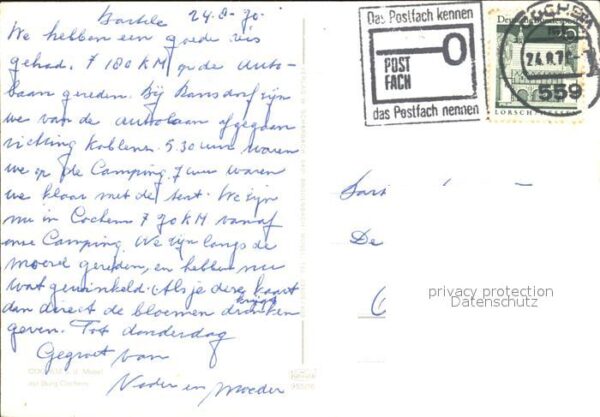 24-8-70.
We hebben een goede reis
gehad. ± 180 KM op de auto-
baan gereden. Bij Ransdorf zijn
we van de autobaan afgegaan
richting Koblenz. 5.30 uur waren
we op de Camping. 7 uur waren
we klaar met de tent. We zijn
nu in Cochem ± 70 KM vanaf
onze Camping. We zijn langs de
moezel gereden, en hebben nu
wat gewinkeld. Als je deze kaart
krijgt
dan direct de bloemen drinken
geven. Tot donderdag
Gegroet van
Vader en moeder
Das Postfach kennen
POST
FACH
das Postfach nennen
COCHEM
24.8.70
559
LORSCH
De
privacy protection
Datenschutz